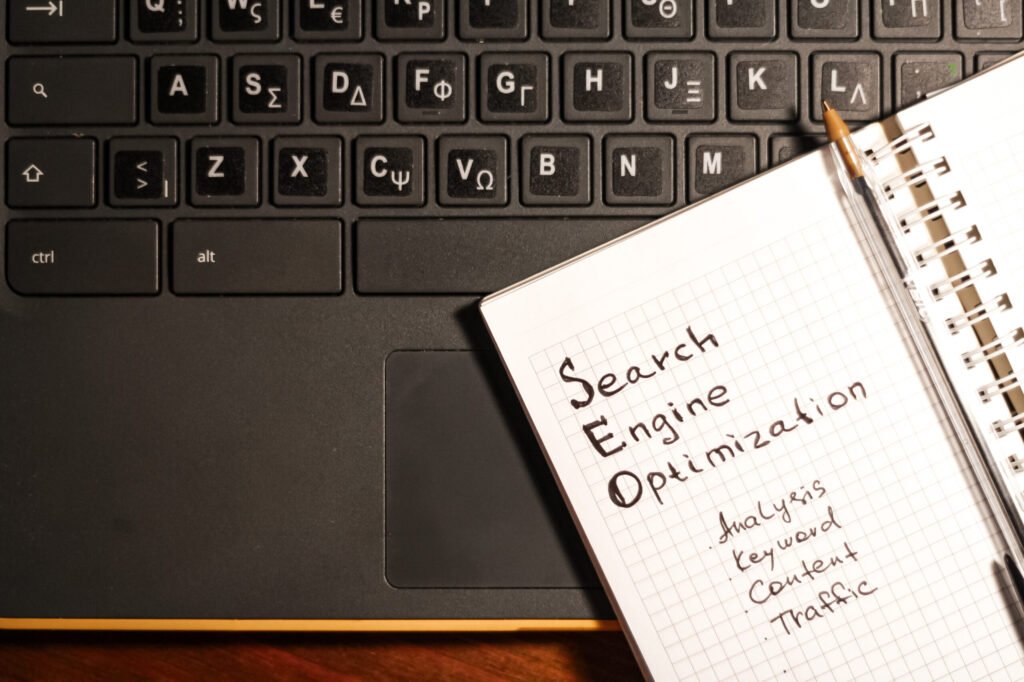 Q W ς E € R Ρ
A S Σ D Δ F Φ G Γ H J Ξ K L Λ
< > | Z X C Ψ V Ω B N M
ctrl alt
Search
Engine
Optimization
. Analysis
. Keyword
. Content
. Traffic